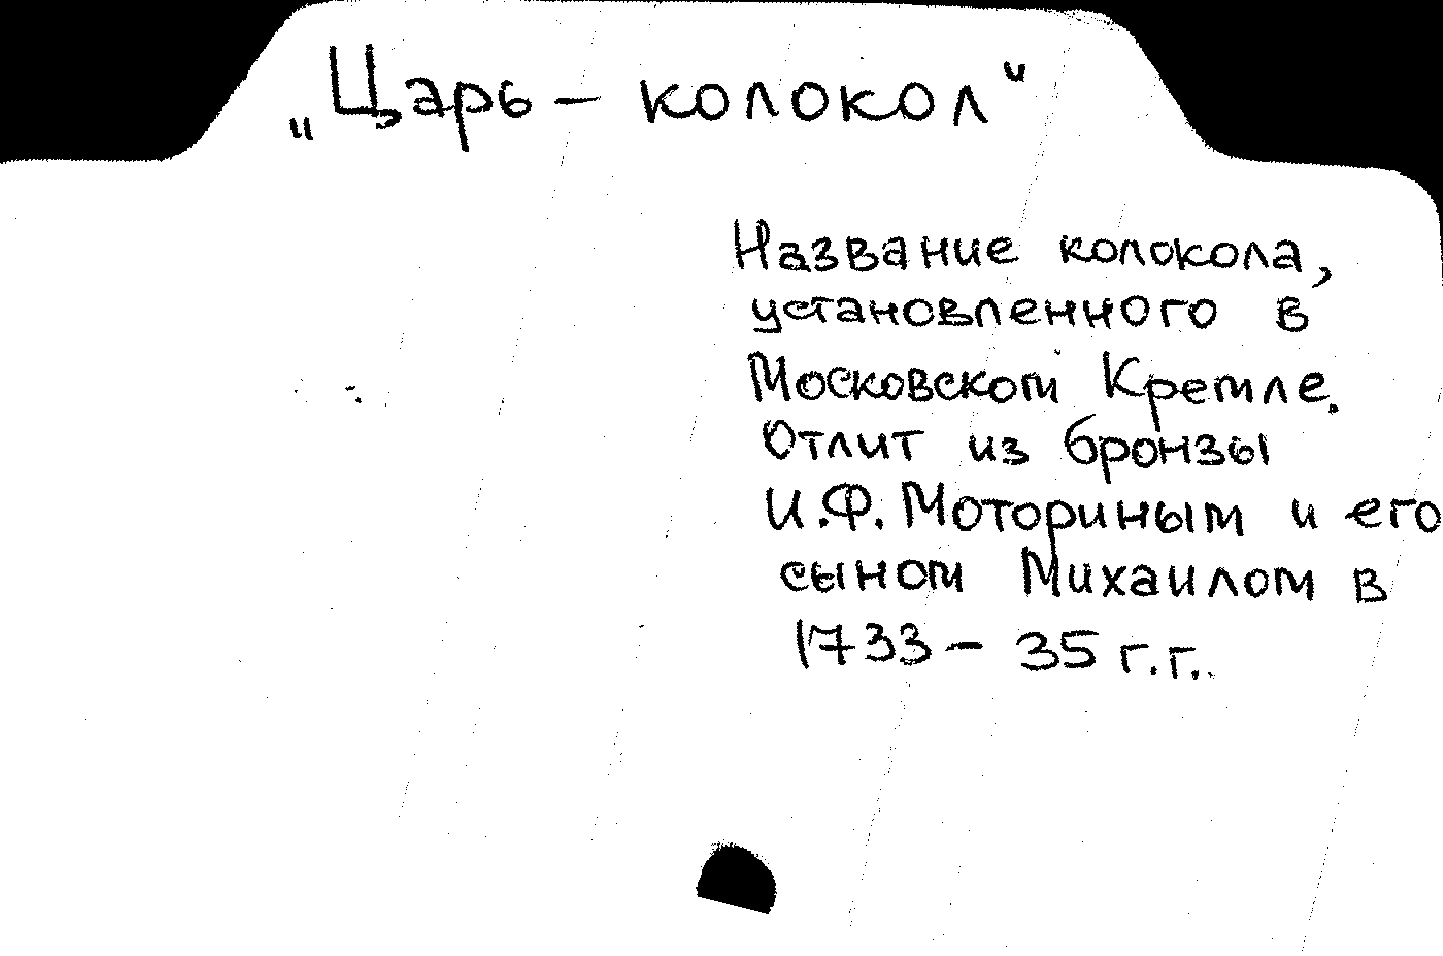 „Царь – колокол"
Название колокола,
установленного в
Московском Кремле.
Отлит из бронзы
И.Ф. Моториным и его
сыном Михаилом в
1733 – 35 г.г.